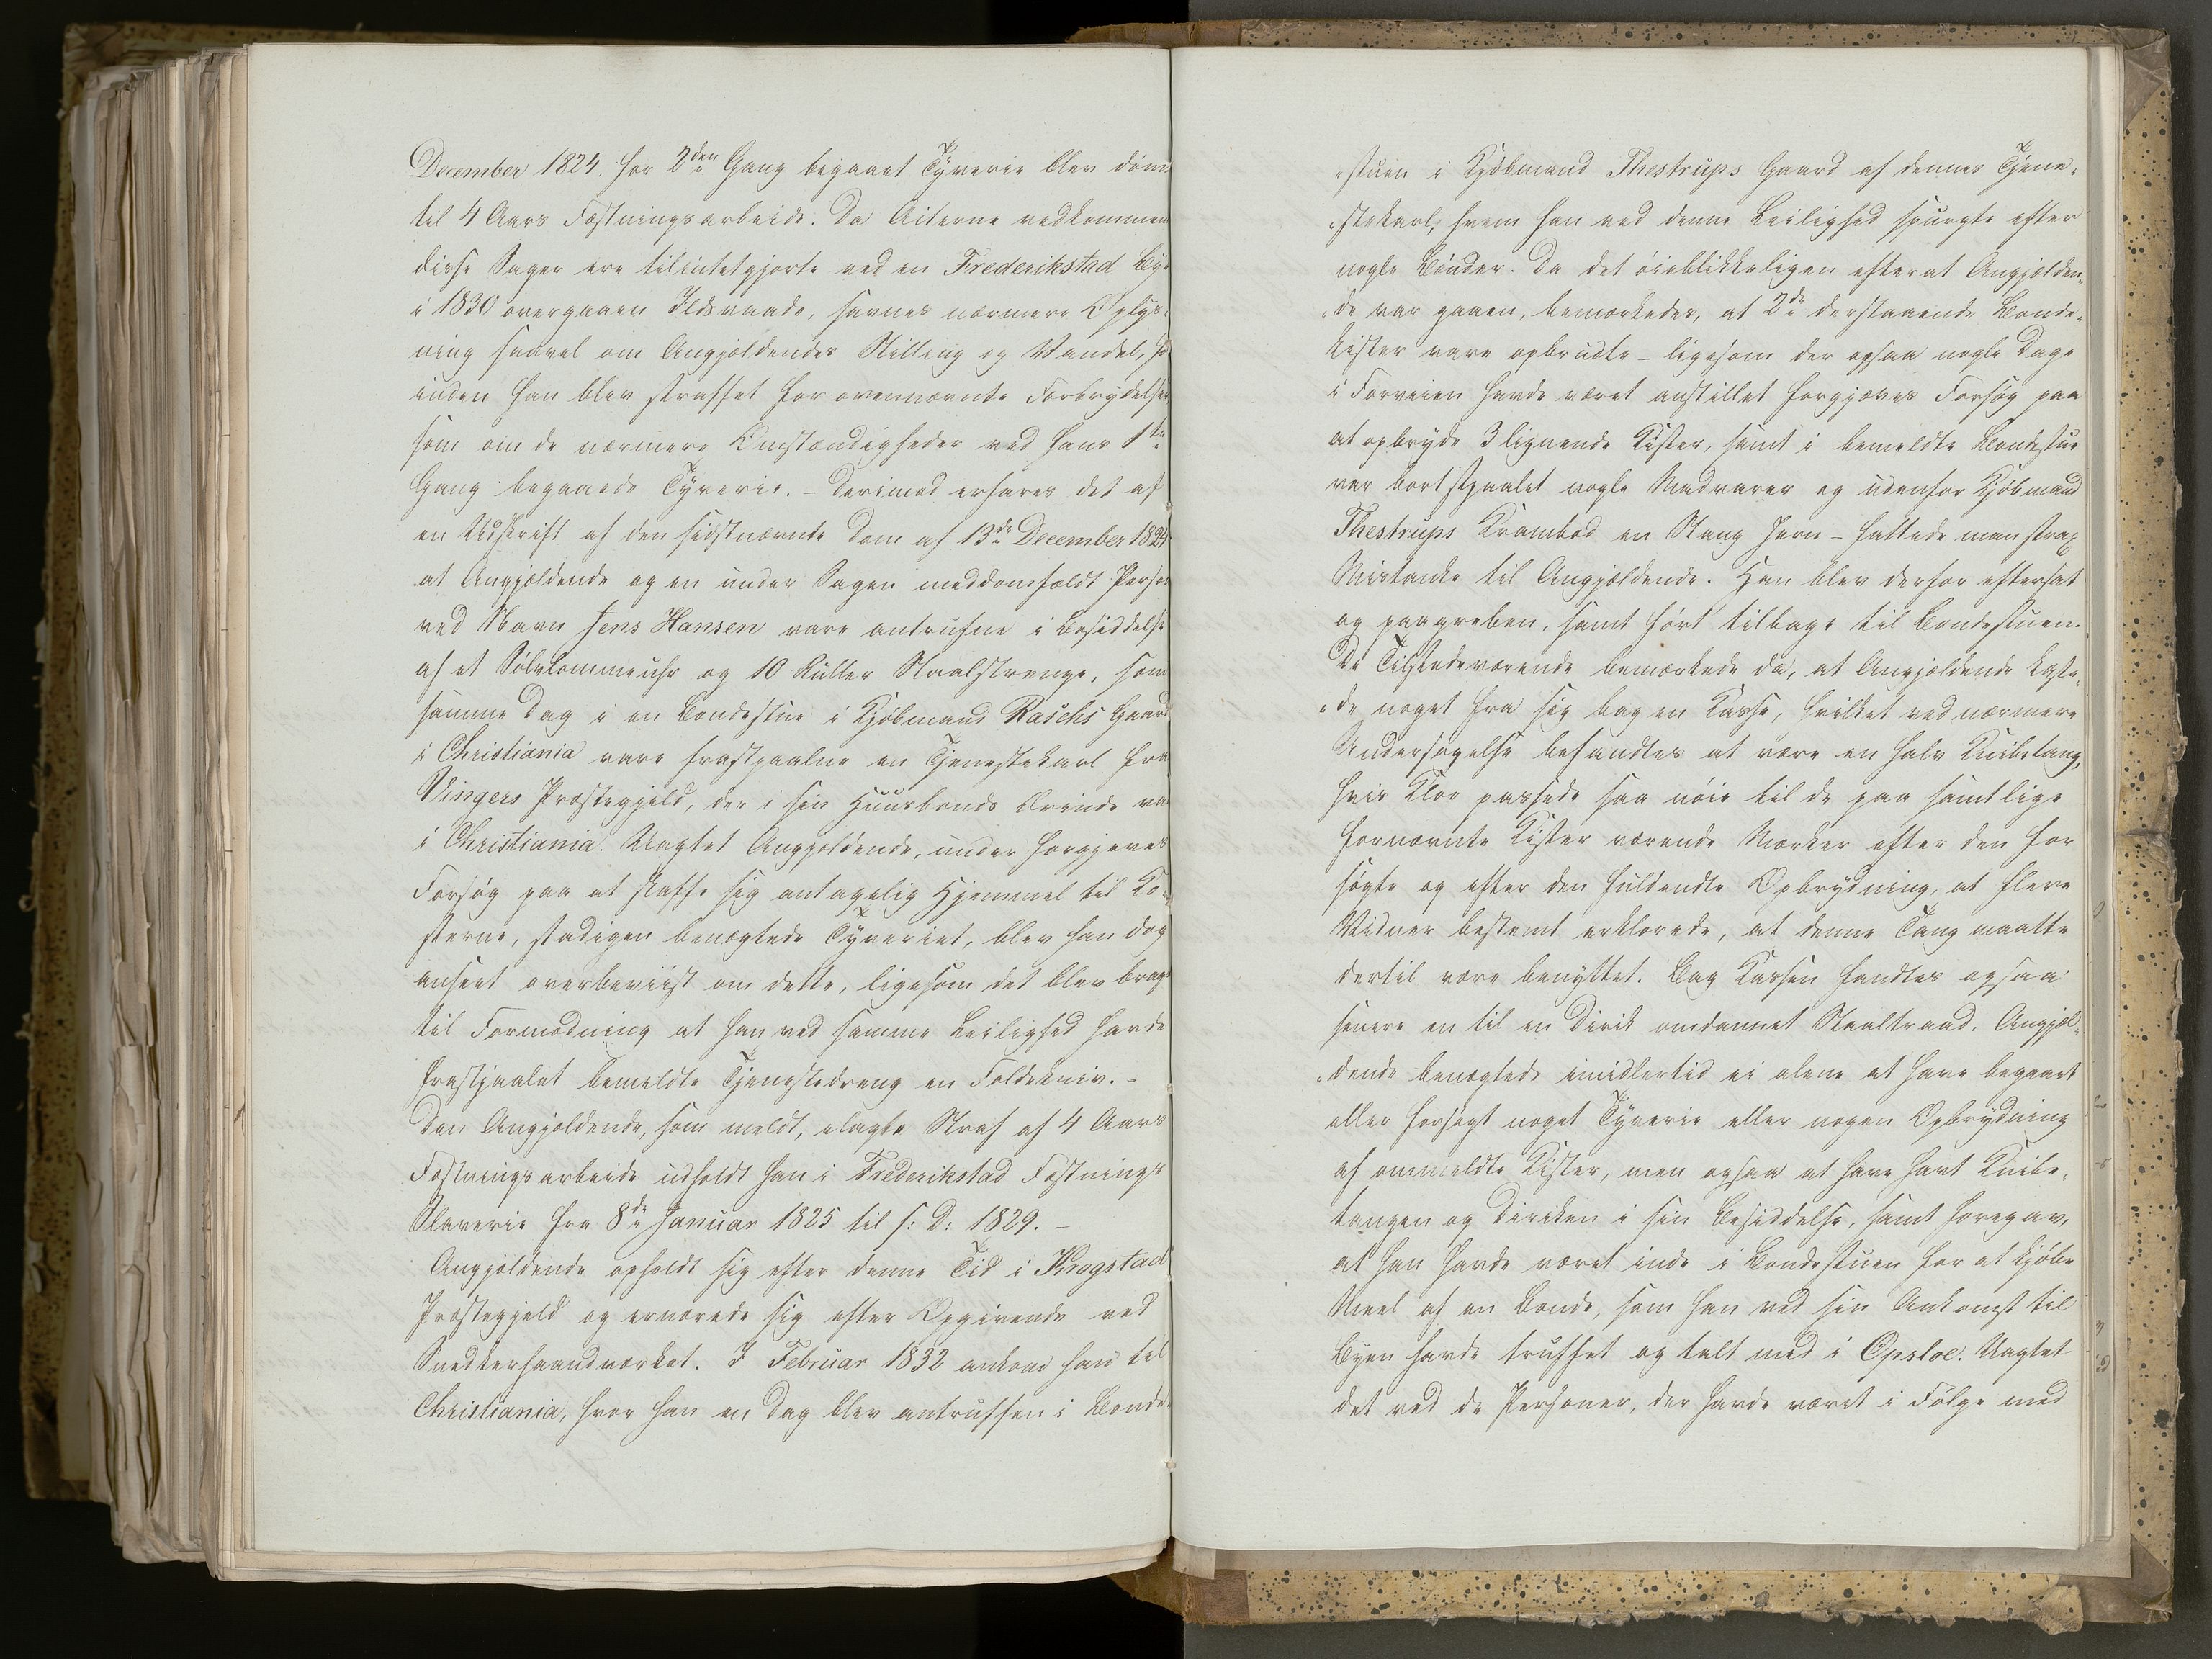 December 1824. for 2den Gang begaaet Tyverie blev døm
til 4 Aars Fæstningsarbeide. Da Acterne vedkommen
disse Sager ere tilintetgjorte ved en Frederikstad Bye
i 1830 overgaaen Ildsvaade, savnes nærmere Oplys-
ning saavel om Angjældendes Stilling og Vandel, før
inden han blev straffet for ovennævnte Forbrydelser
som om de nærmere Omstændigheder ved hans 1ste
Gang begaaede Tyverie. - Derimod erfares det af
en Udskrift af den sidstnævnte Dom af 13de December 1824
at Angjældende og en under Sagen meddomfældt Person
ved Navn Jens Hansen vare antrufne i Besiddelse
af et Sølvlommeuhr og 10 Ruller Staalstrenge, som
samme Dag i en Bondestue i Kjøbmand Raschs Gaard
i Christiania vare frastjaalne en Tjenestekarl fra
Vingers Præstegjeld, der i sin Huusbonds Ærinde va
i Christiania. Uagtet Angjældende, under forgjeves
Forsøg paa at skaffe sig antagelig Hjemmel til Ko-
sterne, stadigen benægtede Tyveriet, blev han dog
anseet overbeviist om dette, ligesom det blev bragt
til Formodning at han ved samme Leilighed havde
frastjaalet bemeldte Tjenestedreng en Foldekniv. -
Den Angjældende, som meldt, ilagte Straf af 4 Aars
Fæstningsarbeide udholdt han i Frederikstad Fæstnings
Slaverie fra 8de Januar 1825 til s: D: 1829. -
Angjældende opholdt sig efter denne Tid i Krogstad
Præstegjeld og ernærede sig efter Opgivende ved
Snedkerhaandværket. I Februar 1832 ankom han til
Christiania, hvor han en Dag blev antruffen i Bonde-
stuen i Kjøbmand Thestrups Gaard af dennes Tjene-
stekarl, hvem han ved denne Leilighed spurgte efter
nogle Bønder. Da det øieblikkeligen efterat Angjælden-
de var gaaen, bemærkedes, at 2de derstaaende Bonde-
kister vare opbrudte - ligesom der ogsaa nogle Dage
i Forveien havde været anstillet forgjæves Forsøg paa
at opbryde 3 lignende Kister, samt i bemeldte Bondestue
var bortstjaalet nogle Madvarer og udenfor Kjøbmand
Thestrups Krambod en Stang Jern - fattede man strax
Mistanke til Angjældende. Han blev derfor eftersat
og paagreben, samt ført tilbage til Bondestuen.
De Tilstedeværende bemærkede da, at Angjældende kaste-
de noget fra sig bag en Kasse, hvilket ved nærmere
Undersøgelse befandtes at være en halv Knibetang,
hvis Kloe passede saa nøie til de paa samtlige
fornævnte Kister værende Mærker efter den for
søgte og efter den fuldendte Opbrydning, at flere
Vidner bestemt erklærede, at denne Tang maatte
dertil være benyttet. Bag Kassen fandtes ogsaa
senere en til en Dirik omdannet Staaltraad. Angjæl-
dende benægtede imidlertid ei alene at have begaaet
eller forsøgt noget Tyverie eller nogen Opbrydning
af ommeldte Kister, men ogsaa at have havt Knibe-
tangen og Diriken i sin Besiddelse, samt foregav,
at han havde været inde i Bondestuen for at kjøbe
Meel af en Bonde, som han ved sin Ankomst til
Byen havde truffet og talt med i Opsloe. Uagtet
det ved de Personer, der havde været i Følge med